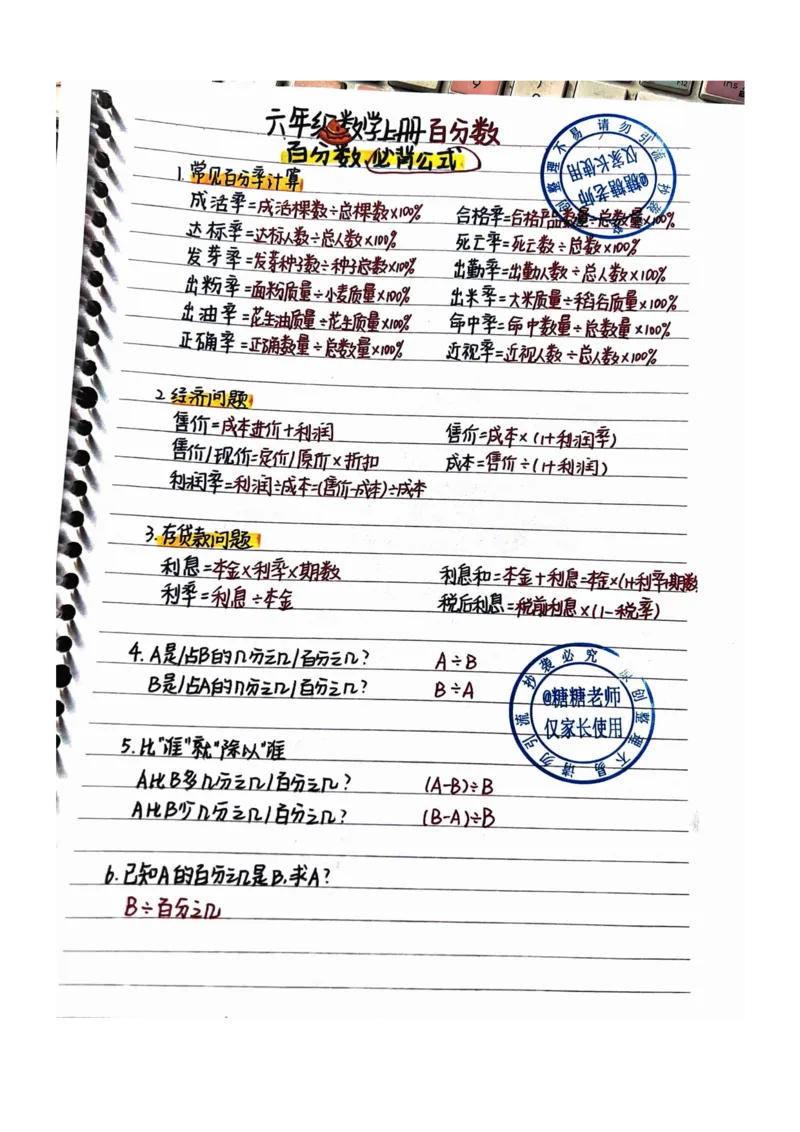 六年级数学上册百分数
百分数必背公式
1.常见百分率计算
成活率=成活棵数÷总棵数×100% 合格率=合格产品数量÷总数量×100%
达标率=达标人数÷总人数×100% 死亡率=死亡数÷总数×100%
发芽率=发芽种子数÷种子总数×100% 出勤率=出勤人数÷总人数×100%
出粉率=面粉质量÷小麦质量×100% 出米率=大米质量÷稻谷质量×100%
出油率=花生油质量÷花生质量×100% 命中率=命中数量÷总数量×100%
正确率=正确数量÷总数量×100% 近视率=近视人数÷总人数×100%
2.经济问题
售价=成本进价+利润 售价=成本×(1+利润率)
售价/现价=定价/原价×折扣 成本=售价÷(1+利润)
利润率=利润÷成本=(售价-成本)÷成本
3.存贷款问题
利息=本金×利率×期数 利息和=本金+利息=本金×(1+利率×期数
利率=利息÷本金 税后利息=税前利息×(1-税率)
4.A是/占B的几分之几/百分之几? A÷B
B是/占A的几分之几/百分之几? B÷A
5.比"谁"就"除以"谁
A比B多几分之几/百分之几? (A-B)÷B
A比B少几分之几/百分之几? (B-A)÷B
6.已知A的百分之几是B,求A?
B÷百分之几
@糖糖老师
仅家长使用
整理不易 请勿引流 抄袭
@糖糖老师
仅家长使用
创整理不易 请勿引流 抄袭必究